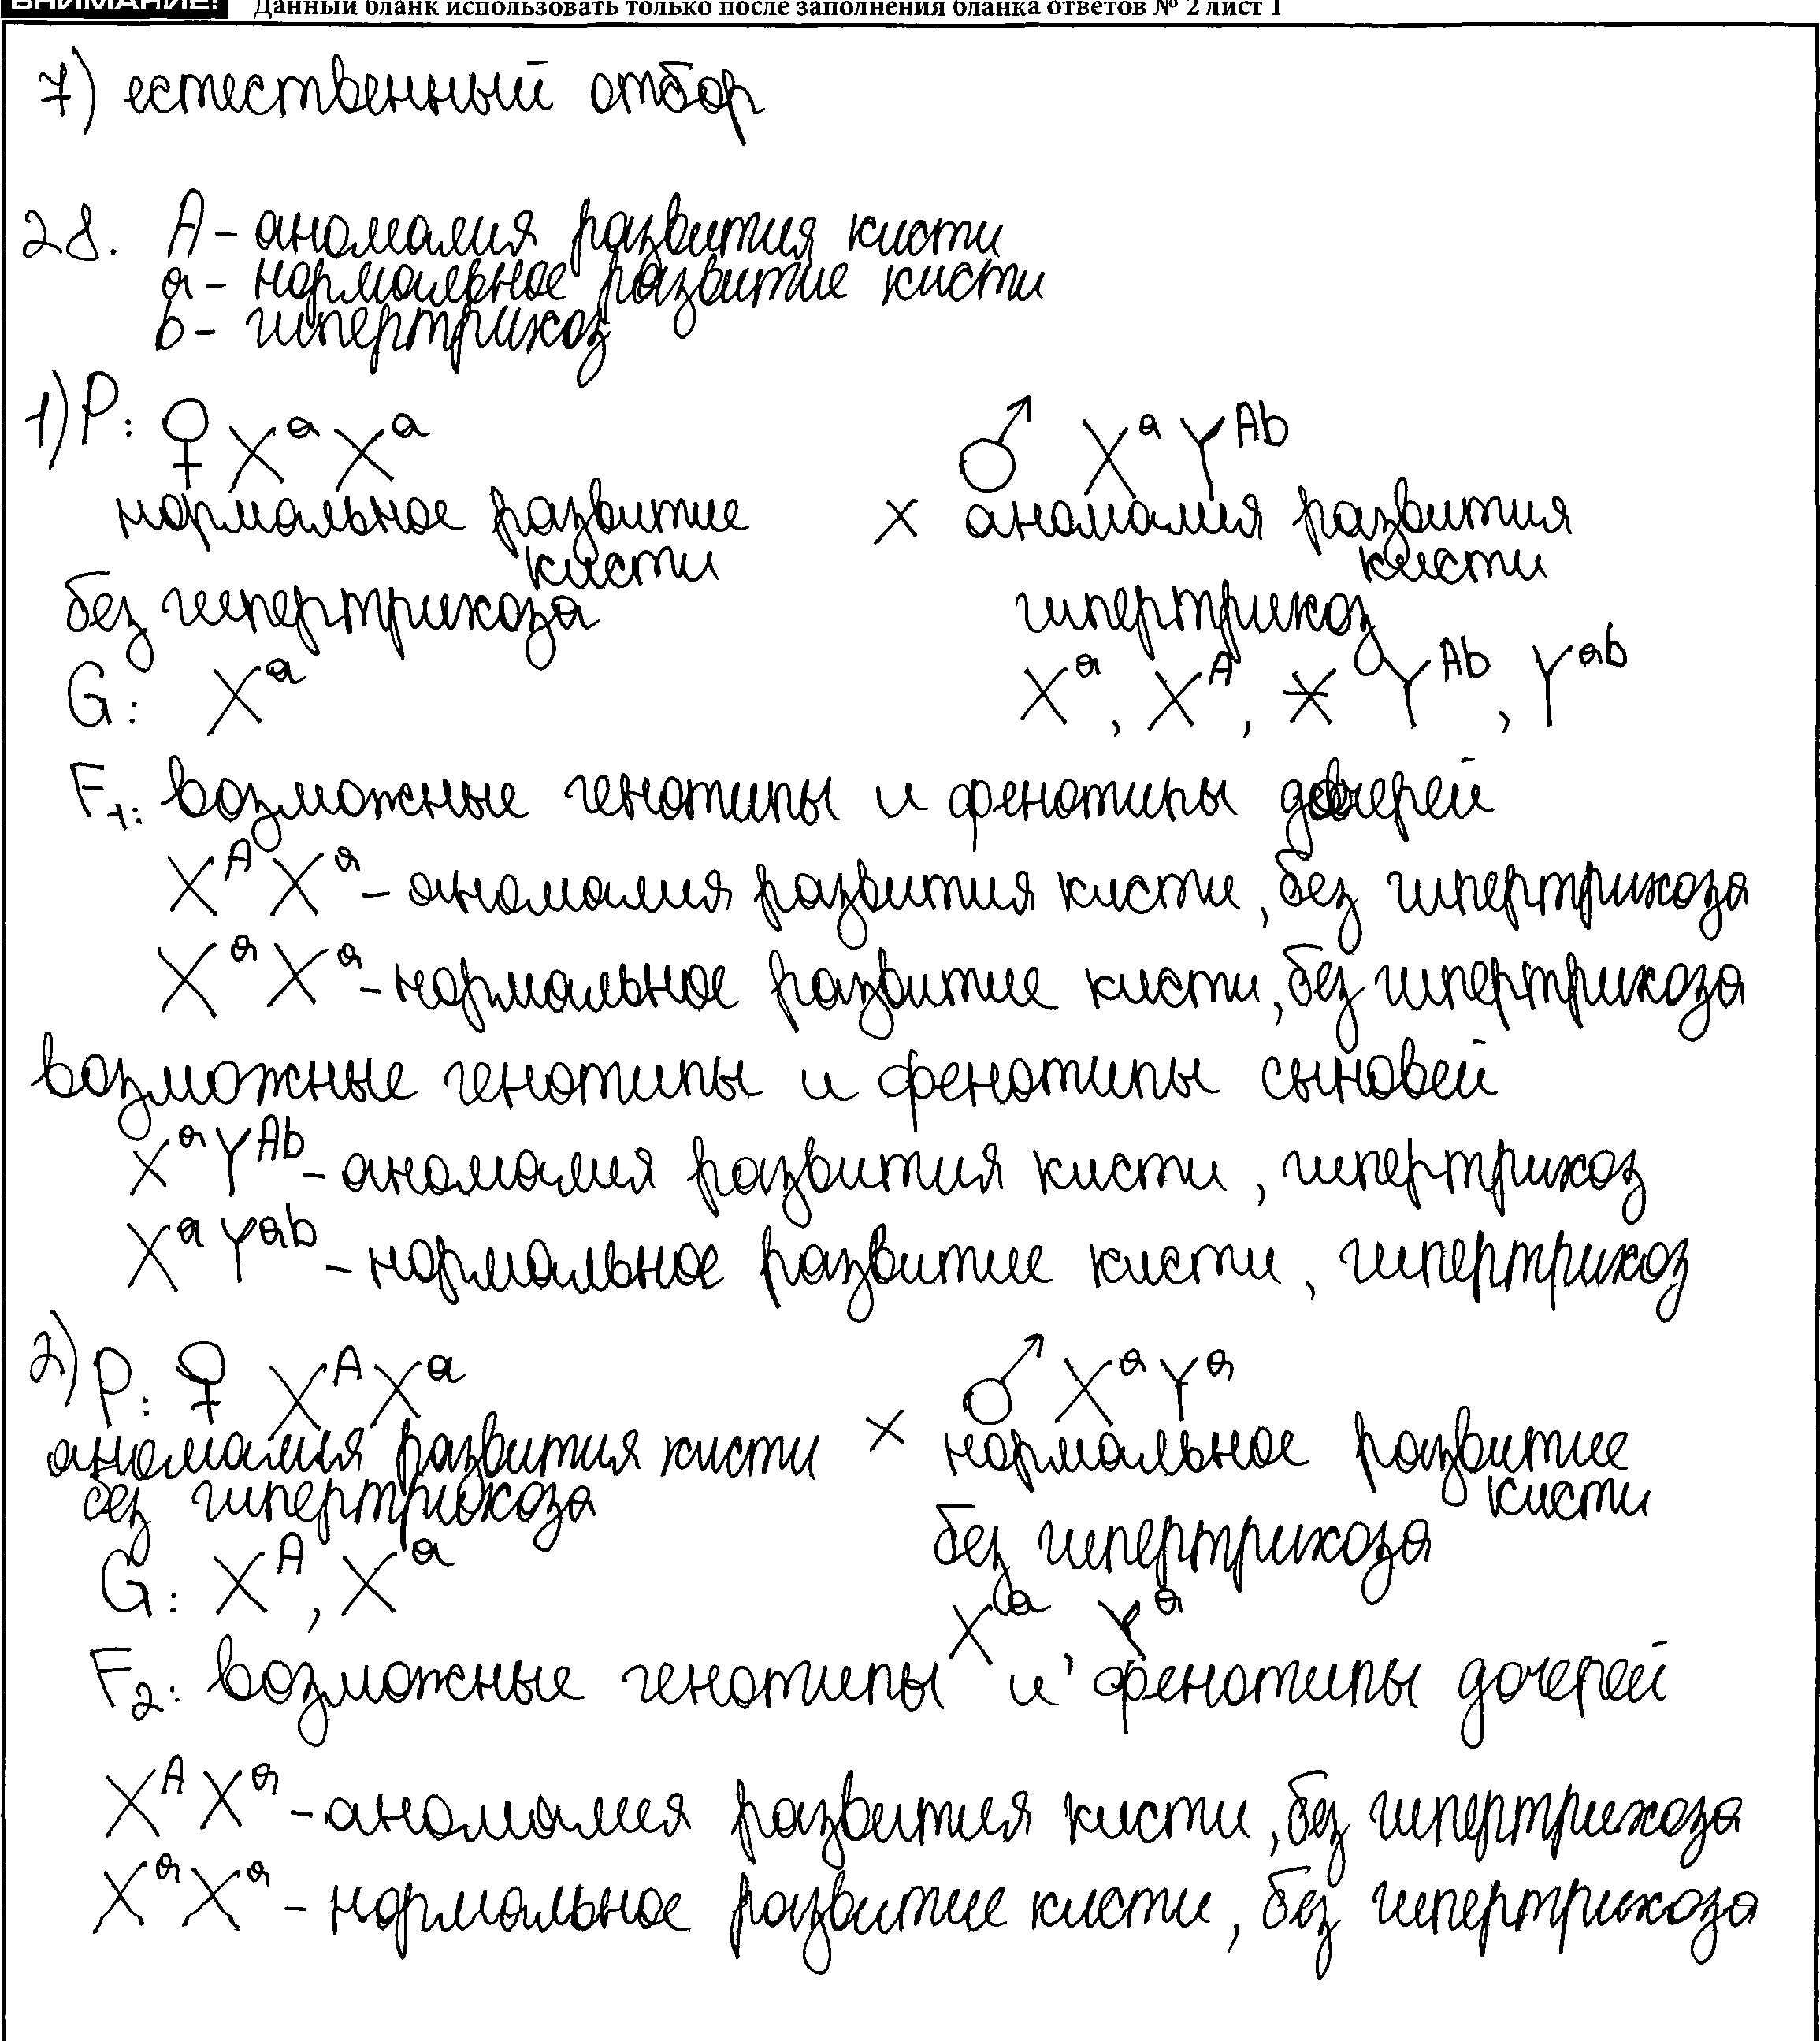 ВНИМАНИЕ! Данный бланк использовать только после заполнения бланка ответов № 2 лист 1
7) естественный отбор
28. A - аномалия развития кисти
a - нормальное развитие кисти
b - гипертрихоз
1) P: ♀ XᵃXᵃ ♂ XᵃYᴬᵇ
нормальное развитие × аномалия развития
кисти кисти
без гипертрихоза гипертрихоз
G: Xᵃ Xᵃ, Xᴬ, Yᴬᵇ, Yᵃᵇ
F₁: возможные генотипы и фенотипы дочерей
XᴬXᵃ - аномалия развития кисти, без гипертрихоза
XᵃXᵃ - нормальное развитие кисти, без гипертрихоза
возможные генотипы и фенотипы сыновей
XᵃYᴬᵇ - аномалия развития кисти, гипертрихоз
XᵃYᵃᵇ - нормальное развитие кисти, гипертрихоз
2) P: ♀ XᴬXᵃ ♂ XᵃYᵃ
аномалия развития кисти × нормальное развитие
без гипертрихоза кисти
без гипертрихоза
G: Xᴬ, Xᵃ Xᵃ, Yᵃ
F₂: возможные генотипы и фенотипы дочерей
XᴬXᵃ - аномалия развития кисти, без гипертрихоза
XᵃXᵃ - нормальное развитие кисти, без гипертрихоза